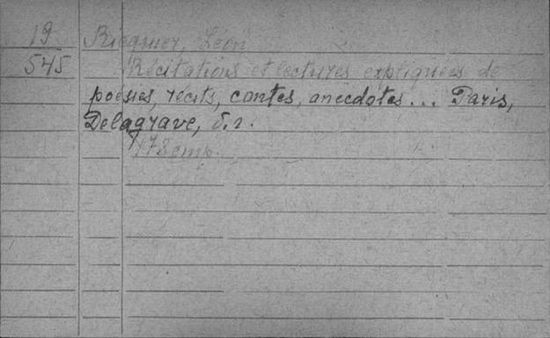 19 Ricquier, Léon
545 Récitations et lectures expliquées de
poésies, récits, contes, anecdotes... Paris,
Delagrave, s.r.
178 cmp.